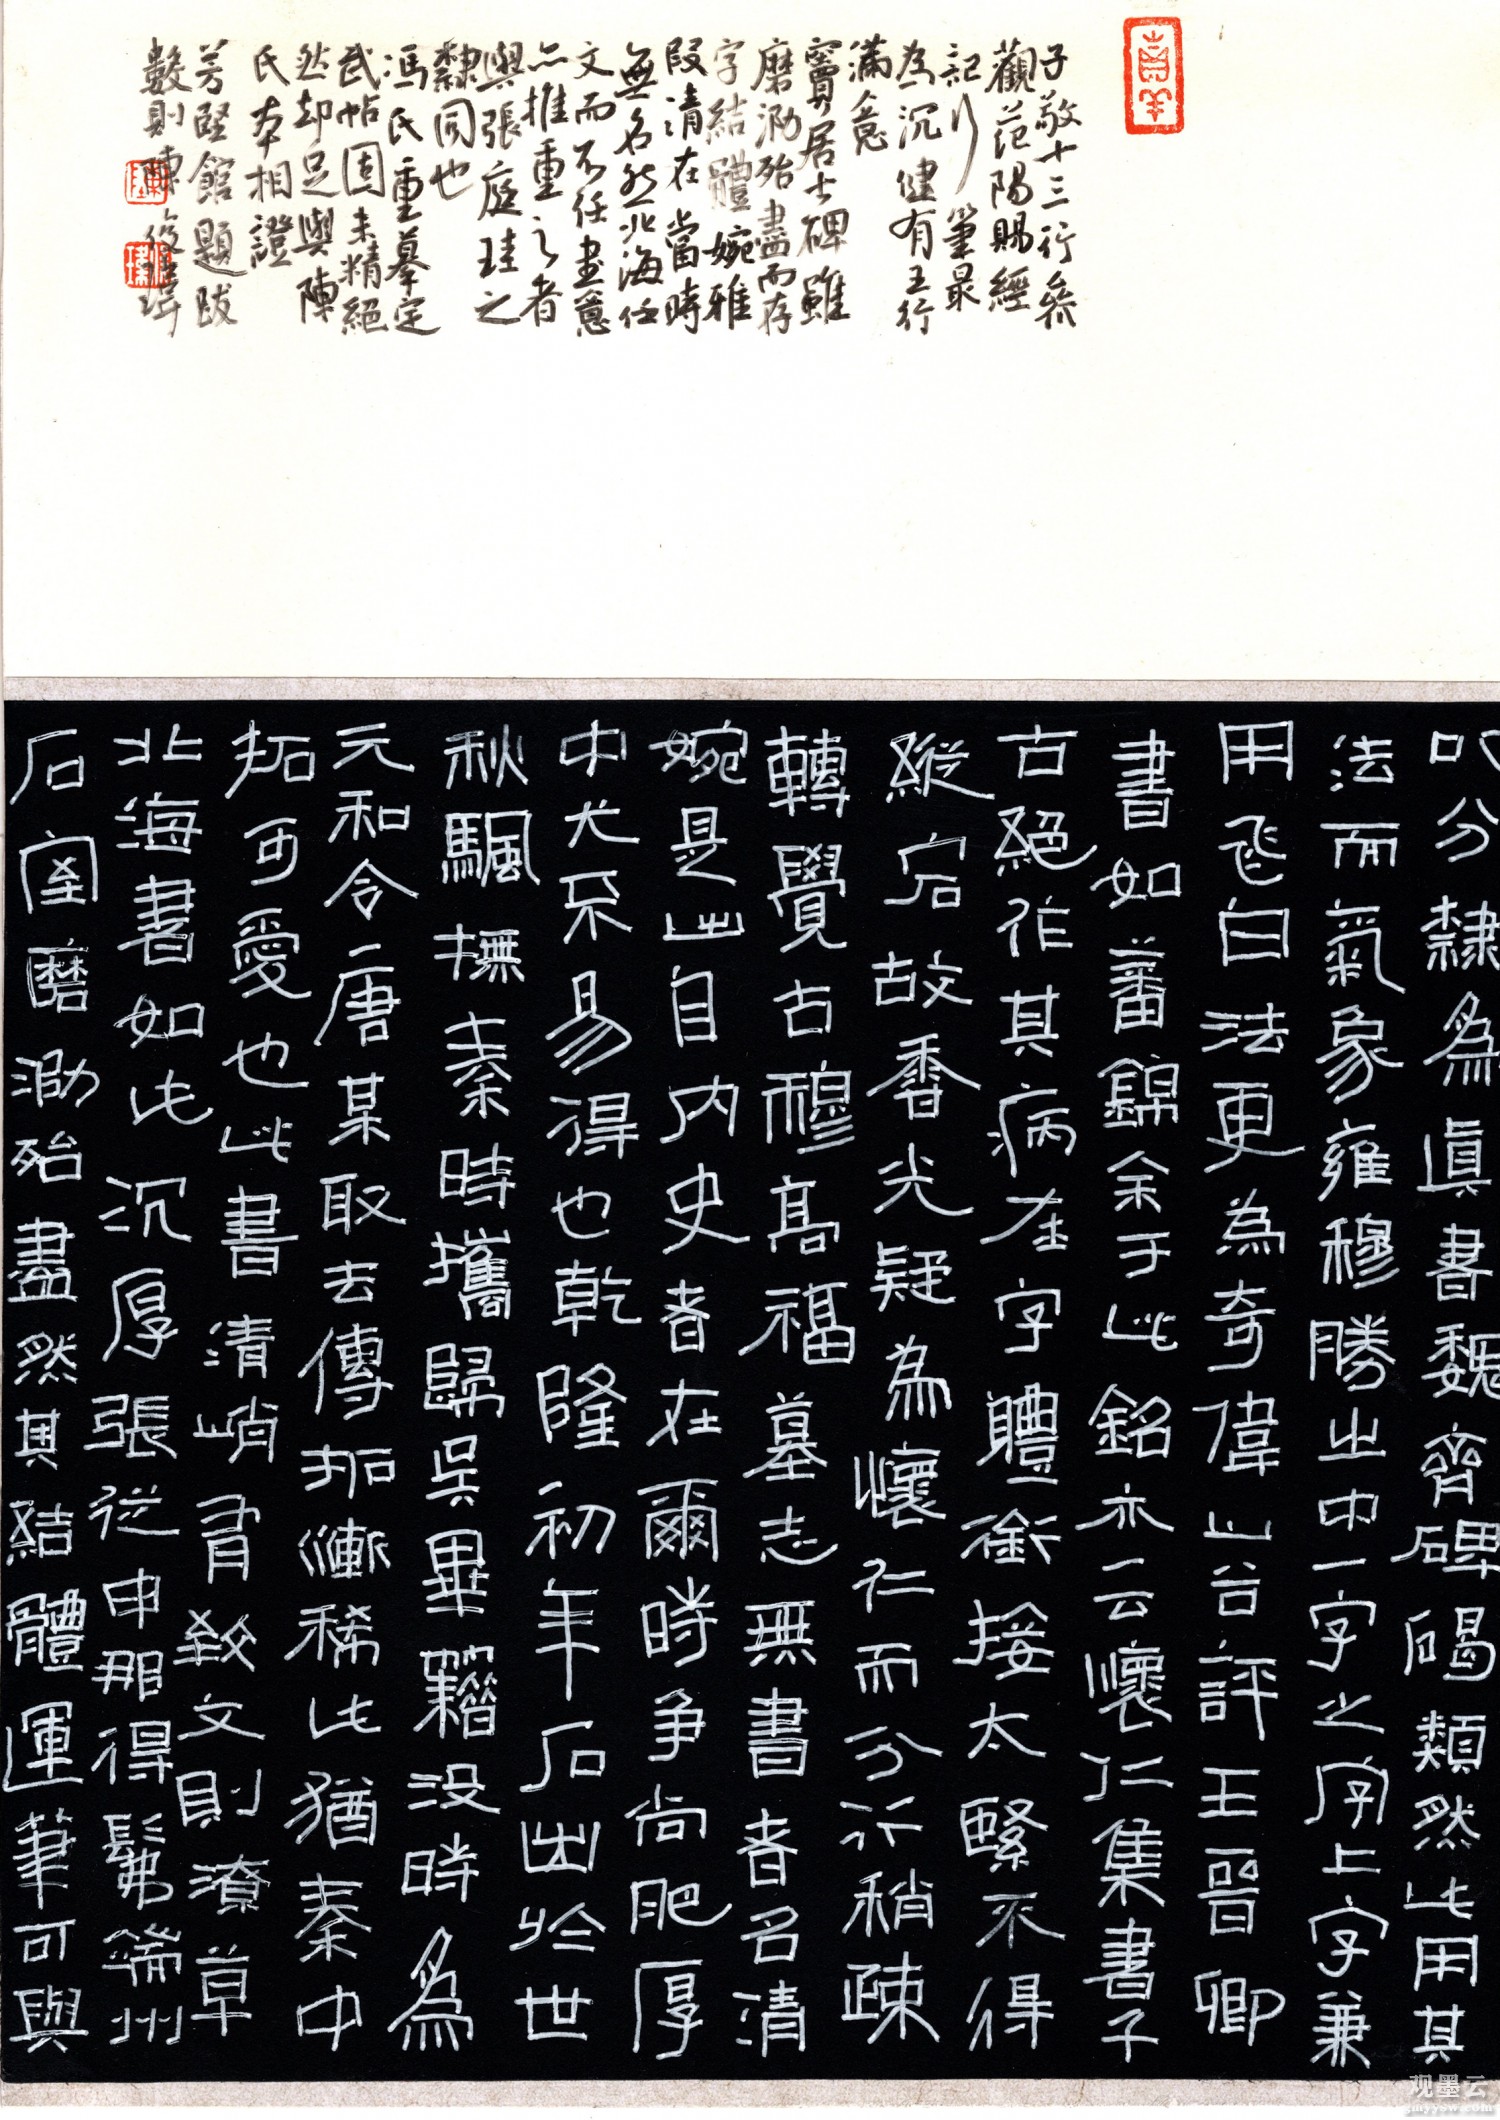 子敬十三行
觀范陽賜經
記行筆最
為沉健有五行
滿意
竇居士碑雖
磨泐殆盡而存
字結體婉雅
段清在當時
無名然北海任
文而不任畫意
亦推重之者
與張庭珪之
隸同也
馮氏重摹定
武帖固未精絕
然却足與陳
氏本相證
芳堅館題跋
數則陳
叭分隸為真書魏齊碑碣類然此用其
法而氣象雍穆勝之中一字之字上字兼
用飛白法更為奇偉山谷評王晉卿
書如蕃錦余于此銘亦云懷仁集書子
古絕作其病在字體銜接太緊不得
縱宕故香光疑為懷仁而分行稍疎
轉覺古穆高福墓志無書者名清
婉是此自內史者在爾時爭尚肥厚
中尤不易得也乾隆初年石出於世
秋颿撫秦時攜歸吳畢籍沒時為
元和令唐某取去傳拓漸稀此猶秦中
拓可愛也此書清峭有致文則潦草
北海書如此沉厚張從申那得髴端州
石室磨泐殆盡然其結體運筆可與
观墨云
gmyysw.com